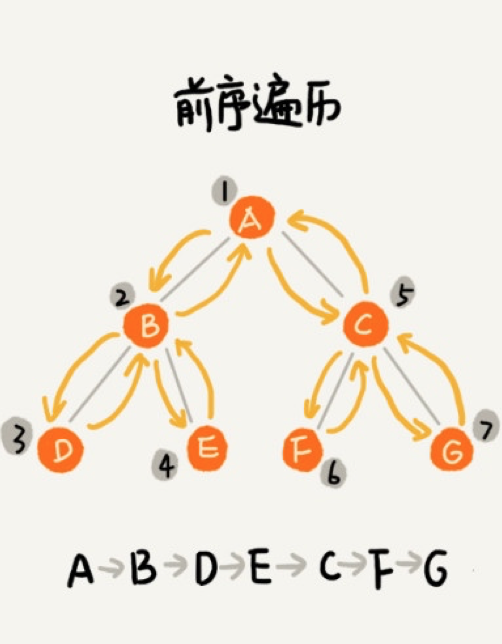 前序遍历
1
A
2
B
5
C
3
D
4
E
F
6
G
7
A→B→D→E→C→F→G